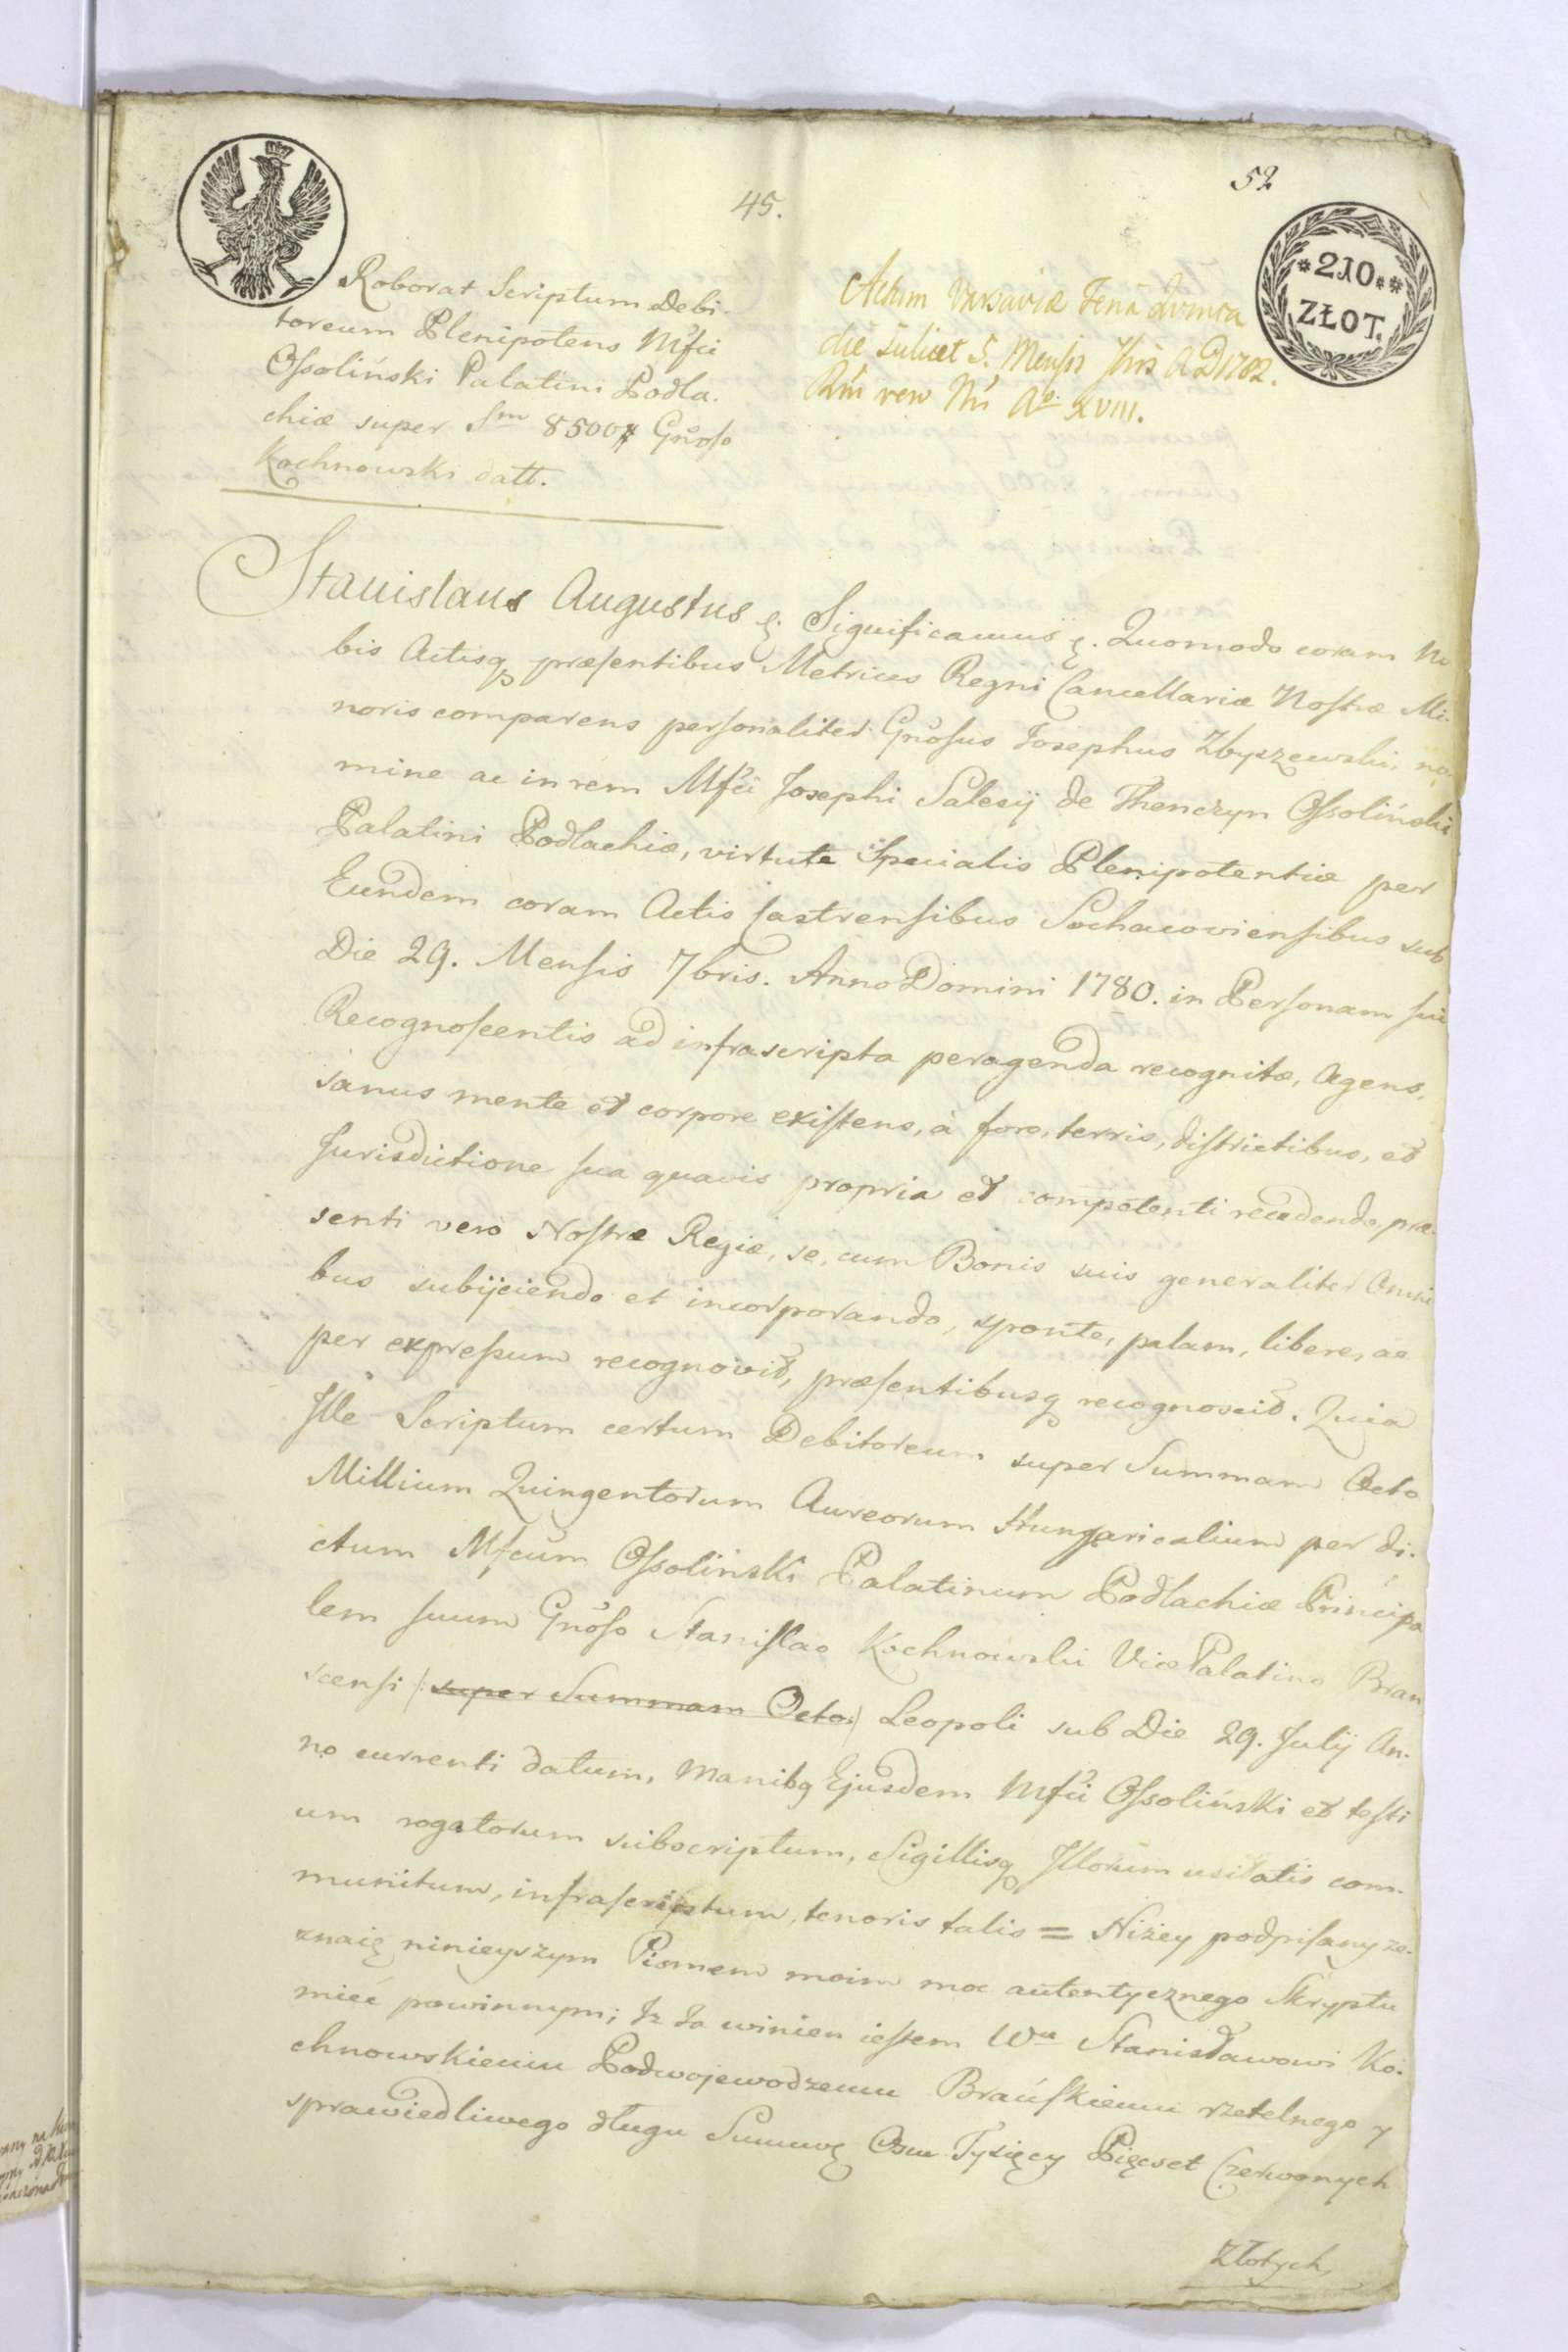 52
45.
*210.*
ZŁOT.
Roborat Scriptum Debi-
toreum Plenipotens Mfci
Ossoliński Palatini Podla-
chiæ super Sm 8500 # Gnoso
Kochnowski datt.
Actum Varsaviæ Feria Quinta
die scilicet 5. Mensis A D 1782.
Rni vero Nri Ao. XVIII.
Stanislaus Augustus &. Significamus &. Quomodo coram No
bis Actisq præsentibus Metrices Regni Cancellariæ Nostræ Mi-
noris comparens personaliter Gnosus Josephus Zbyszewski, no-
mine ac in rem Mfci Josephi Salesij de Thenczyn Ossoliński
Palatini Podlachiæ, virtute Specialis Plenipotentiæ per
Eundem coram Actis Castrensibus Sochacoviensibus sub
Die 29. Mensis 7bris. Anno Domini 1780. in Personam sui
Recognoscentis ad infrascripta peragenda recognitæ, Agens,
sanus mente et corpore existens, à foro, terris, districtibus, et
Jurisdictione sua quavis propria et competenti recedendo, præ-
senti vero Nostræ Regiæ, se, cum Bonis suis generaliter Omni
bus subijciendo et incorporando, sponte, palam, libere, ac
per expressum recognovit, præsentibusq recognoscit. Quia
Ille Scriptum certum Debitoreum super Summam Octo
Millium Quingentorum Aureorum Hungaricalium per di-
ctum Mfcum Ossoliński Palatinum Podlachiæ Principa
lem suum Gnoso Stanislao Kochnowski Vice Palatino Bran
scensi /: super Summam Octo :/ Leopoli sub Die 29. Julij An-
no currenti datum, Manibq Ejusdem Mfci Ossoliński et testi
um rogatorum subscriptum, Sigillisq Illorum usitatis com-
munitum, infrascriptum, tenoris talis = Niżey podpisany ze-
znaię ninieyszym Pismem moim moc autentycznego Skryptu
mieć powinnym; Iż Ja winien iestem Wu Stanisławowi Ko-
chnowskiemu Podwojewodzemu Brańskiemu rzetelnego y
sprawiedliwego długu Summę Ośm Tysięcy Pięcset Czerwonych
Złotych,